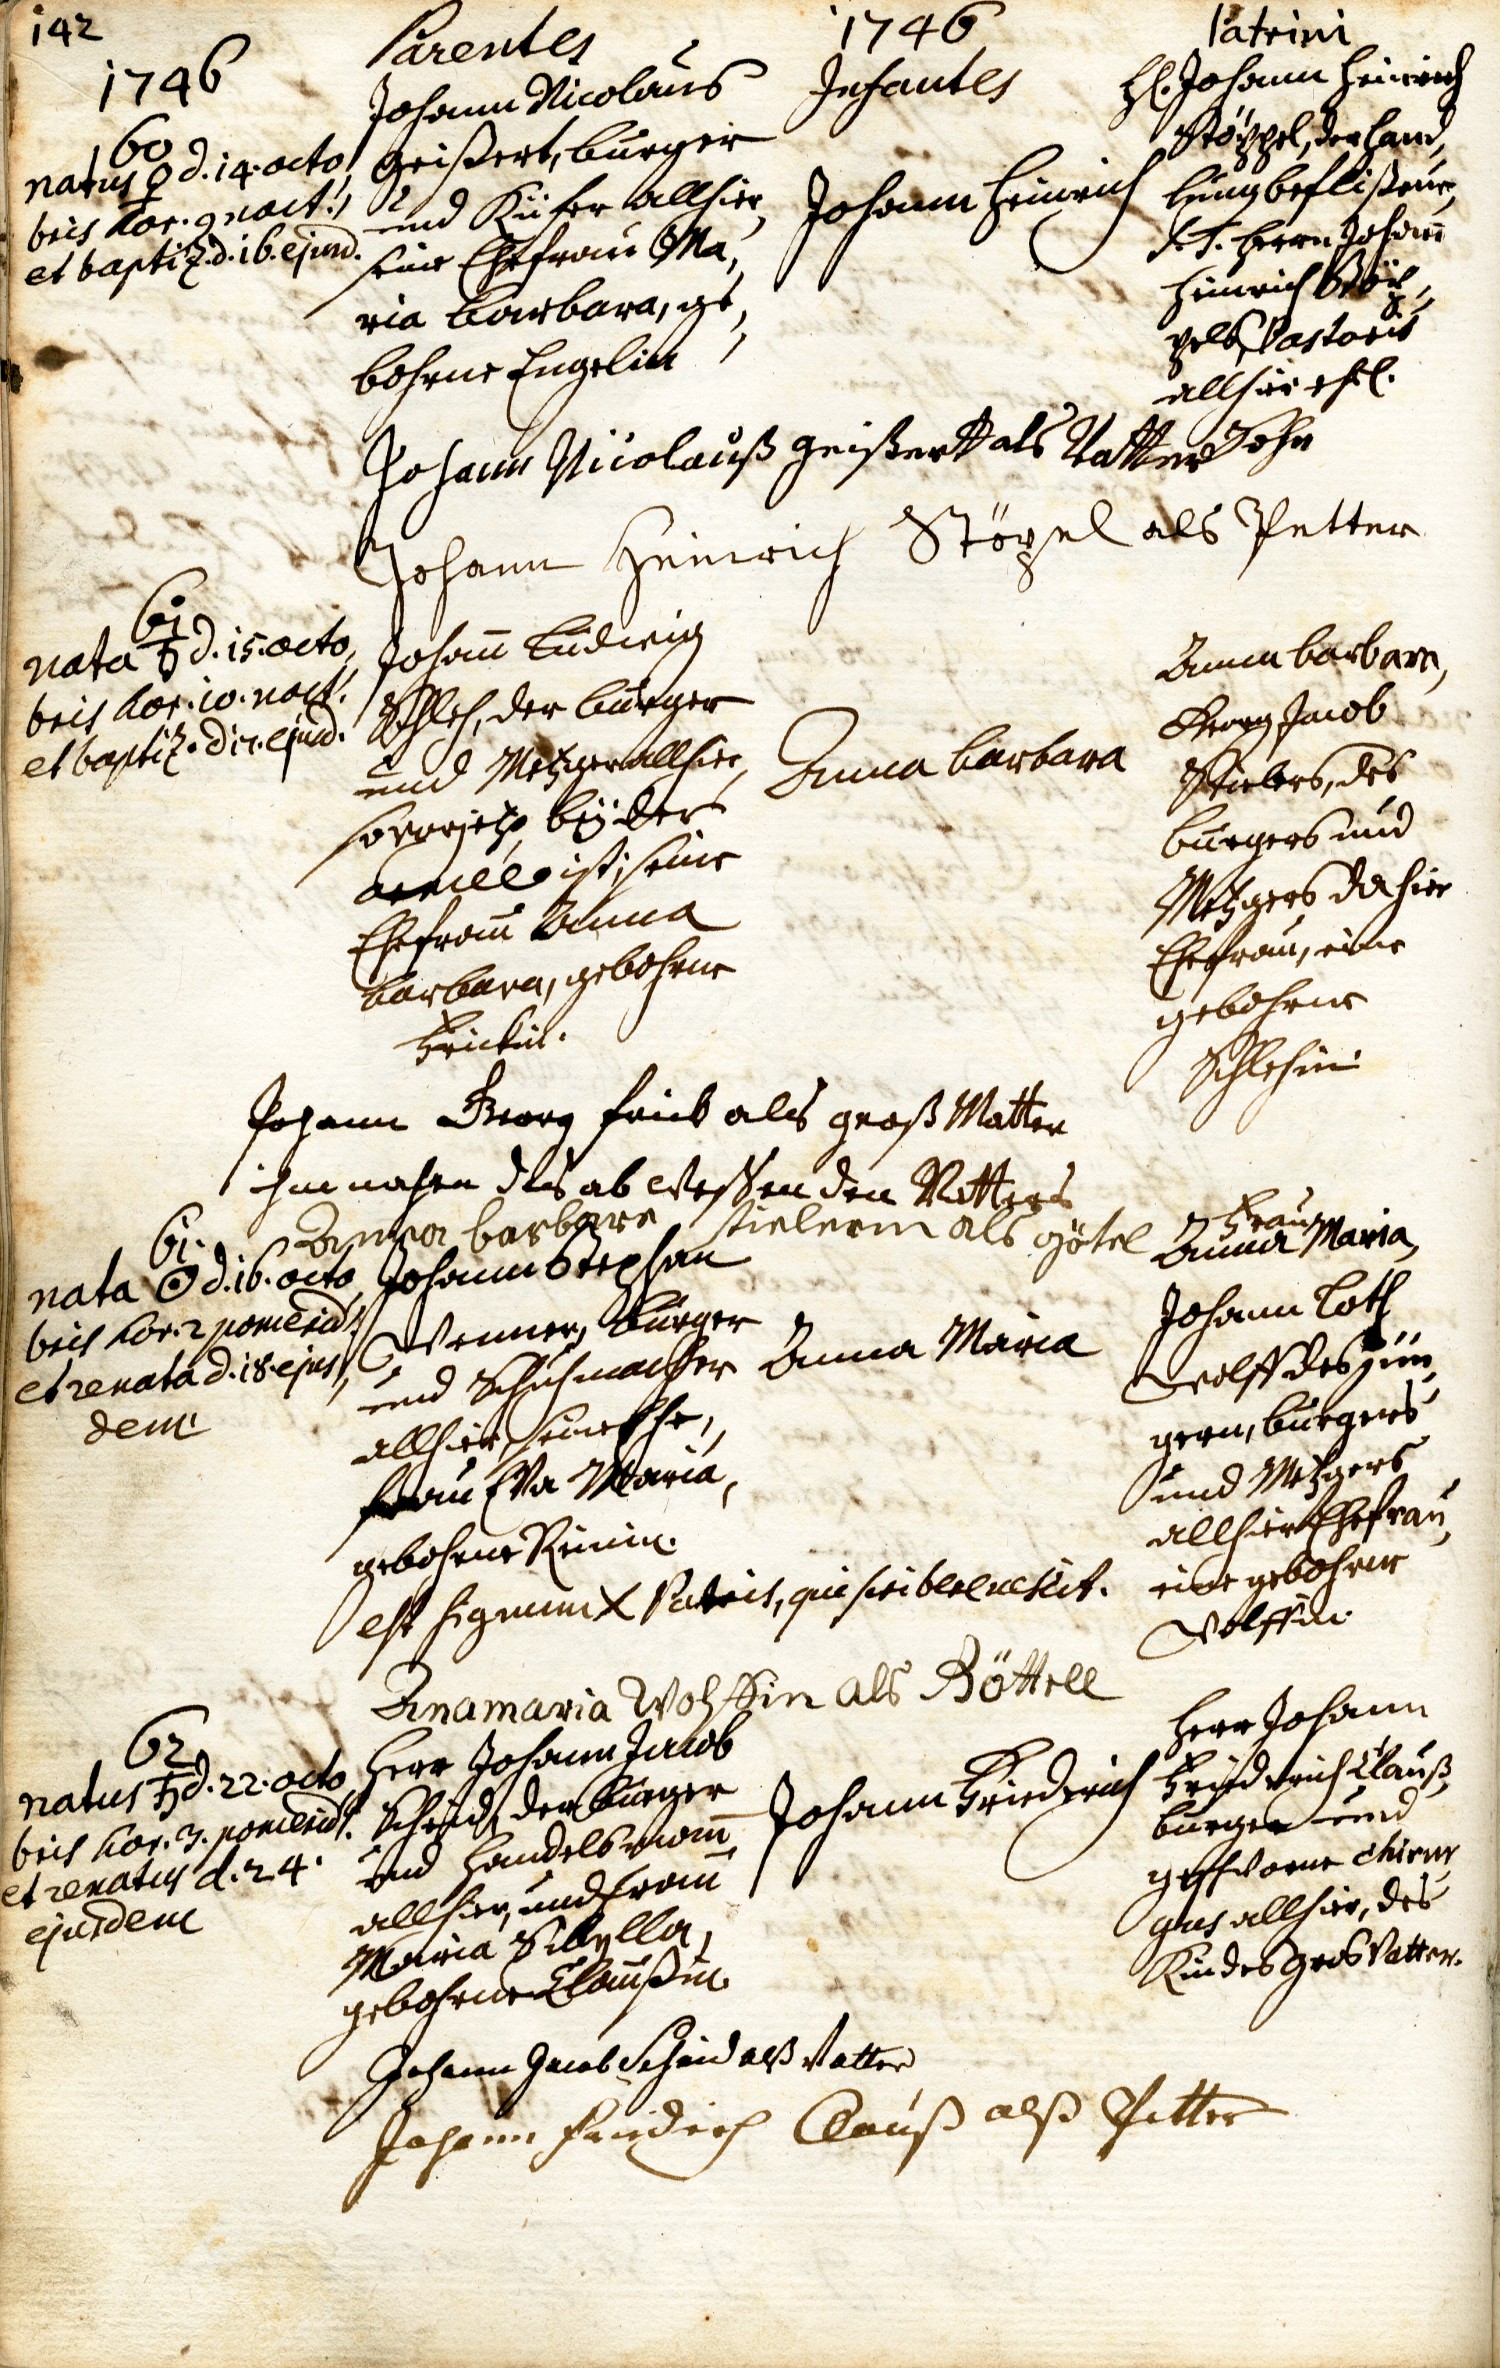 142
1746
Parentes
1746
Infantes
Patrini
60
natus ♀ d. 14. octo,
bris hor. 9 noct.,
et baptiz. d. 16. ejusd.
Johann Nicolaus
Geißert, burger
und Küfer allhier,
seine Ehefrau Ma,
ria Barbara, ge,
bohrne Engelin
Johann Heinrich
H. Johann Heinrich
Stöppel, der Hand,
lung beflißener,
Herrn Johann
Heinrich Stöp,
pels, Pastoris
allhier ehel.
Sohn
Johann Nicolauß Geißert als Vatter
Johann Heinrich Stöpel als Petter
61
nata ♄ d. 15. octo,
bris hor. 10. noct.
et baptiz. d 17. ejusd.
Johann Ludwig
Schleh, der burger
und Metzger allhier,
so vorjetzo bey der
armée ist, seine
Ehefrau Anna
Barbara, gebohrne
Frickin.
Anna Barbara
Anna Barbara,
Georg Jacob
Stielers, des
burgers und
Metzgers dahier
Ehefrau, eine
gebohrne
Schlehin
Johann Georg Frick als groß Vatter
im nahen des ab wessenden Vatters
Anna barbara stielerin als götel
61.
nata ☉ d. 16. octo,
bris hor. 2 pomerid.
et renata d. 18. ejus,
dem
Johann Stephan
Wenner, burger
und Schuhmacher
allhier, seine Ehe,
frau Eva Maria,
gebohrne
Anna Maria
Frau
Anna Maria,
Johann Loth
Wolff des jün,
gern, burgers
und Metzgers
allhier Ehefrau,
eine gebohrne
Wolffin
est signum X Patris, qui scribere nescit.
Anamaria Wolffin als Göttell
62
natus ♄ d. 22. octo,
bris hor. 3. pomerid.
et renatus d. 24.
ejusdem
Herr Johann Jacob
Scheid, der burger
und Handelsmann
allhier, und Frau
Maria Sibylla,
gebohrne Claußin.
Johann Friedrich
Herr Johann
Friedrich Clauß,
burger und
geschworne chirur,
gus allhier, des
Kindes Grosvatter.
Johann Jacob Scheid alß Vatter
Johann Friedrich Clauß alß Petter